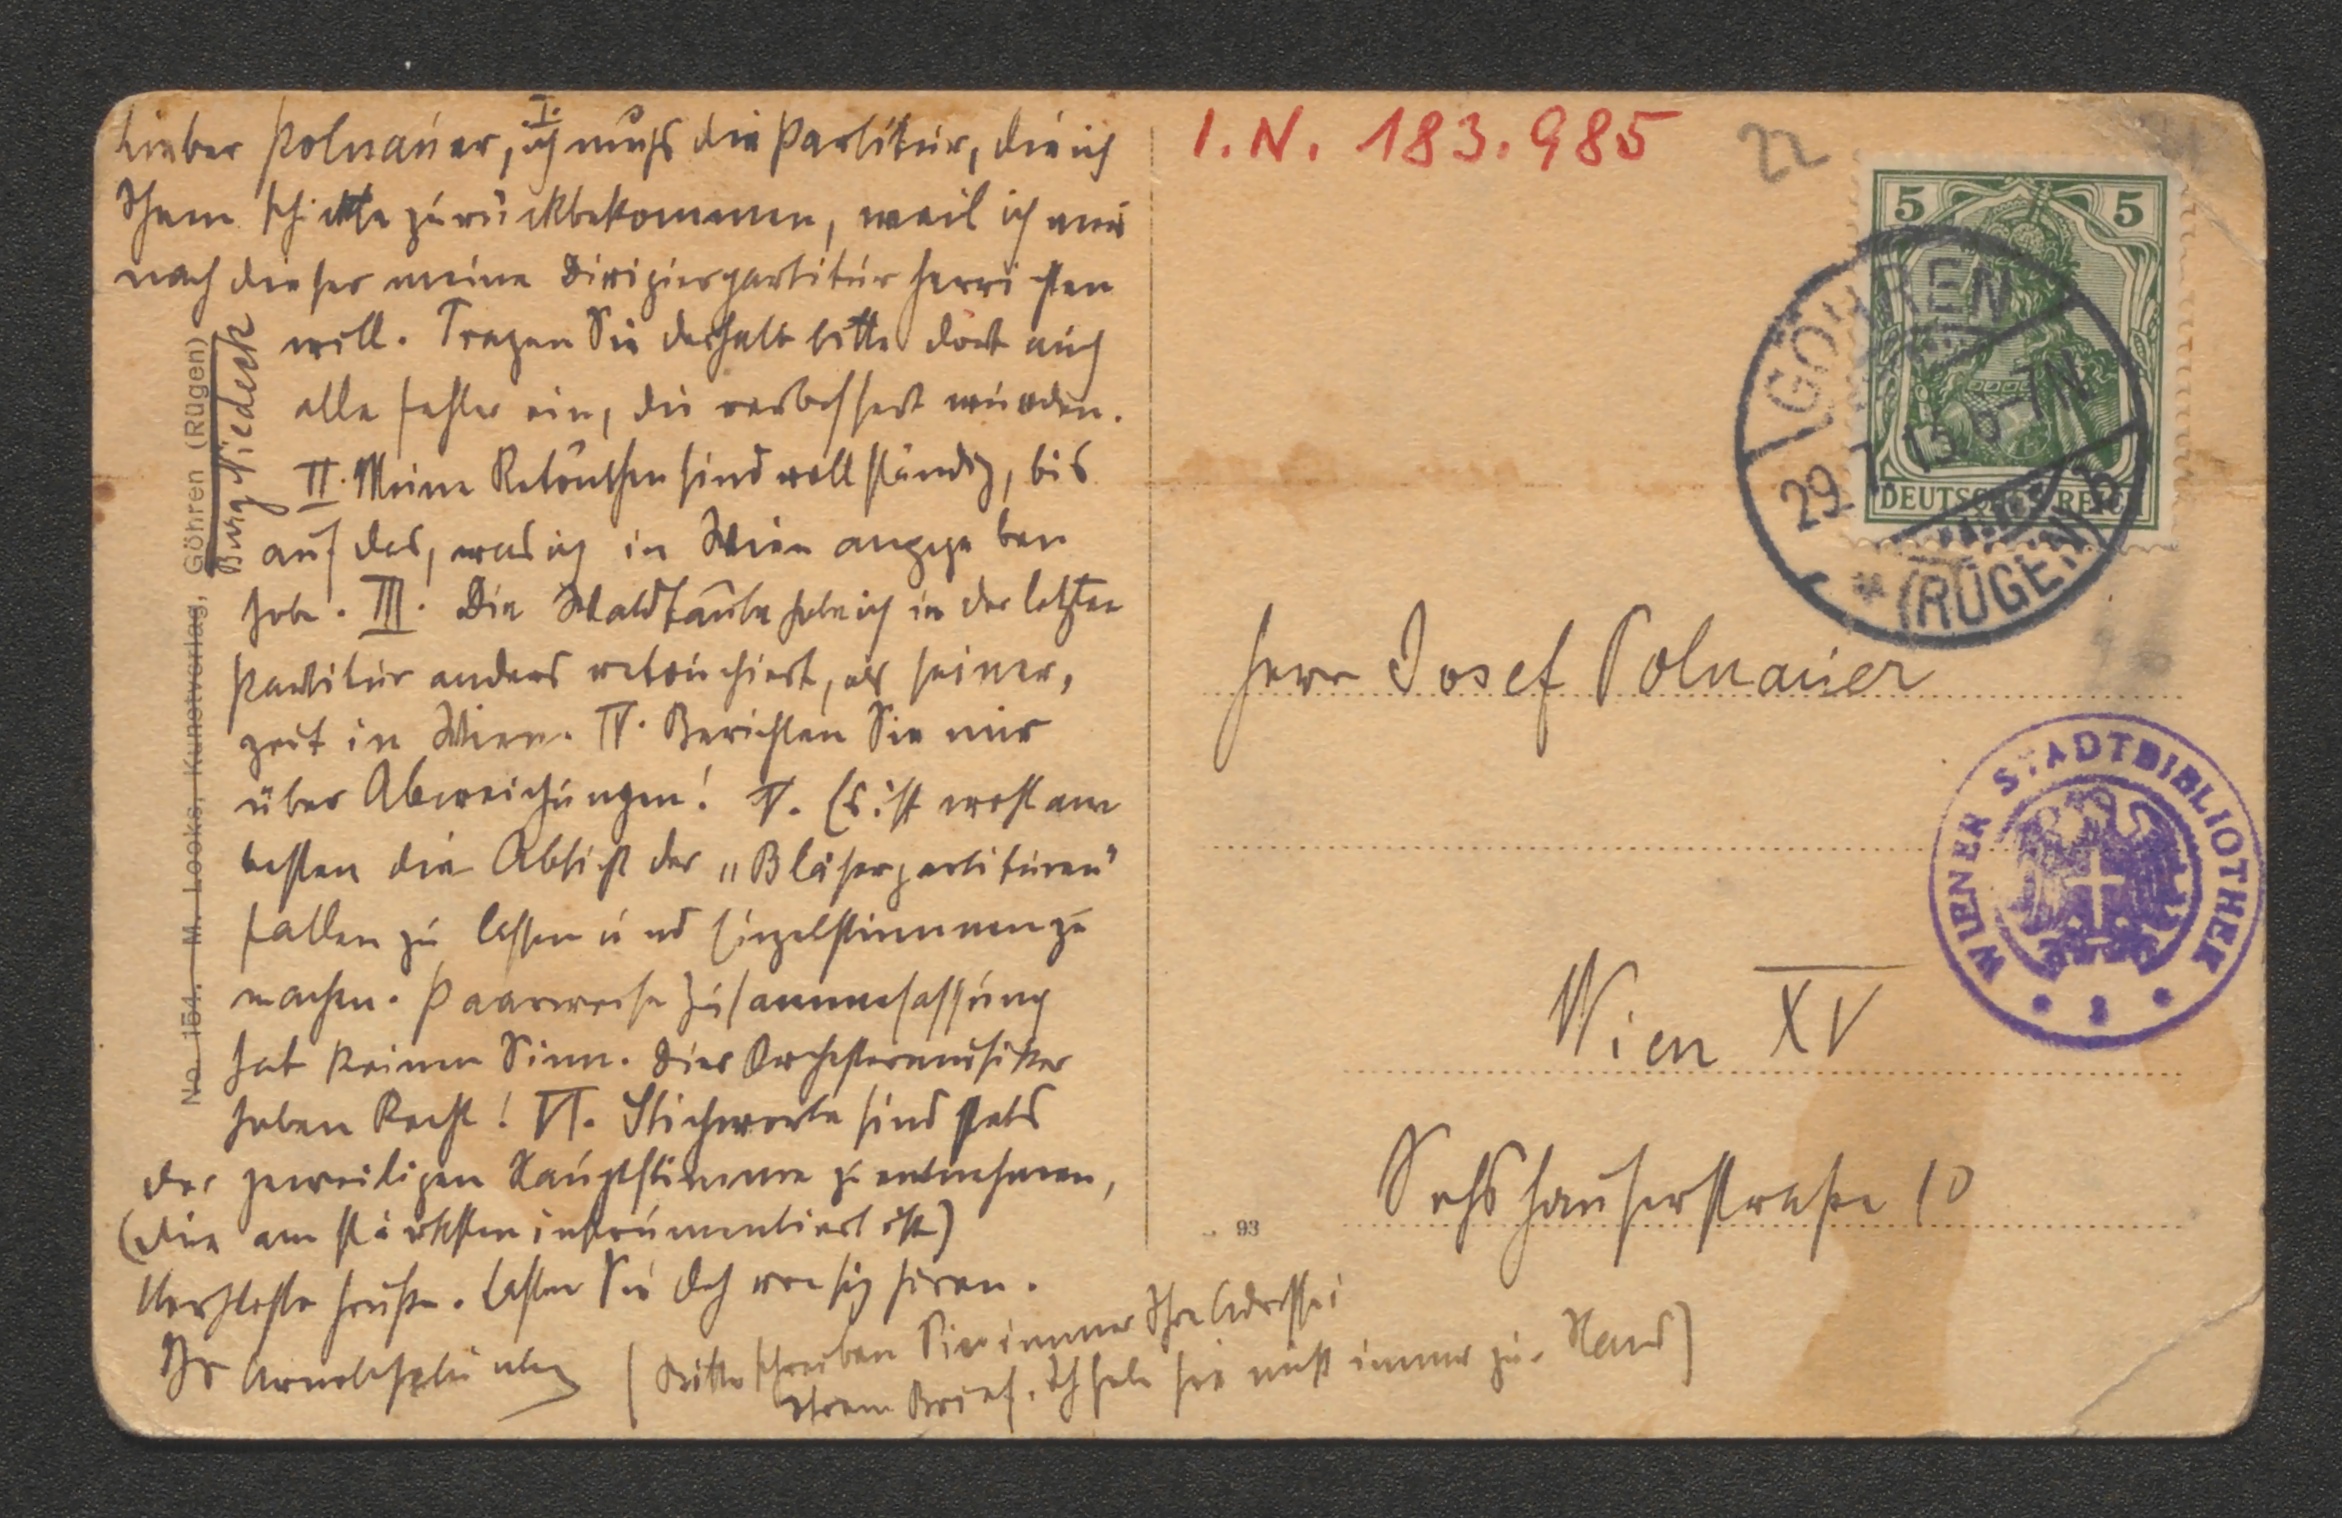 Lieber Polnauer, I. ich muß die Partitur, die ich
Ihnen schickte zurückbekommen, weil ich mir
nach dieser meine Dirigierpartitur herrichten
will. Tragen Sie deshalb bitte dort auch
alle Fehler ein, die verbessert wurden.
II. Meine Retouchen sind vollständig, bis
auf das, was ich in Wien angegeben
habe. III. Die Waldtaube habe ich in der letzten
Partitur anders retouchiert, als seiner,
zeit in Wien. IV. Berichten Sie mir
über Abweichungen! V. Es ist wohl am
besten die Absicht der „Bläserpartituren"
fallen zu lassen und Einzelstimmen zu
machen. Paarweise Zusammenfassung
hat keinen Sinn. Die Orchestermusiker
haben Recht! VI. Stichworte sind stets
der jeweiligen Hauptstimme zu entnehmen,
(die am stärksten instrumentiert ist)
Herzlichste Grüße. Lassen Sie doch von sich hören.
Ihr Arnold Schönberg
(Bitte schreiben Sie immer Ihre Adresse i
Ihrem Brief. Ich habe sie nicht immer zur Hand)
No. 154. M. Looks, Kunstverlag, Göhren (Rügen)
Burg Niedeck
I.N. 183.985
22
5 5
DEUTSCHES REICH
GÖHREN
29 13 6-7N
* (RÜGEN) b
Herrn Josef Polnauer
WIENER STADTBIBLIOTHEK
Wien XV
Sechshauserstraße 10
93